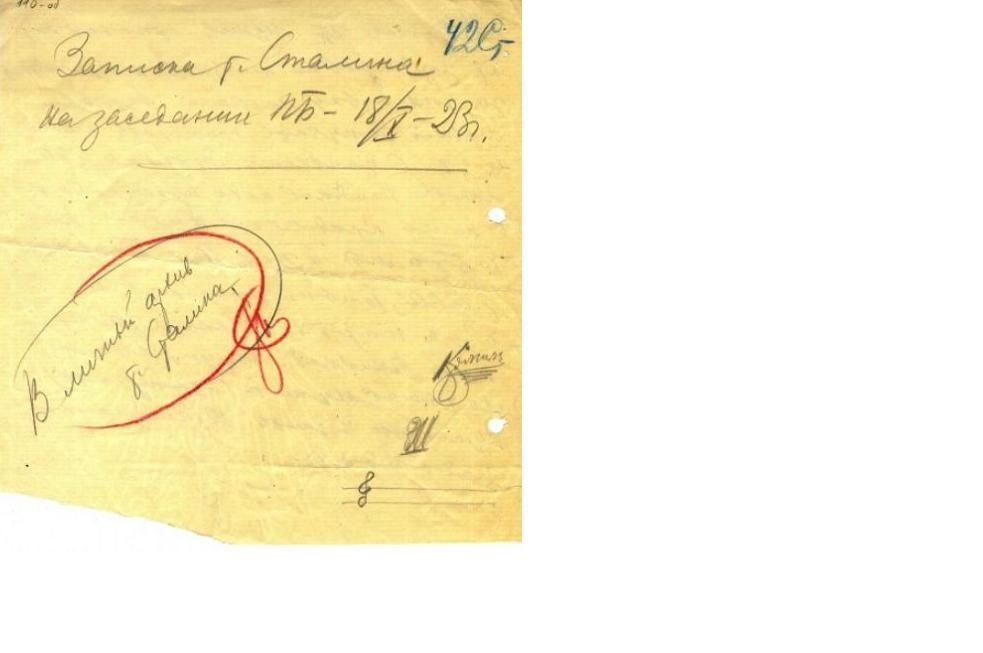 42Ст
Записка т. Сталина
на заседании ПБ - 18/X - 23г.
В личный архив
т. Сталина